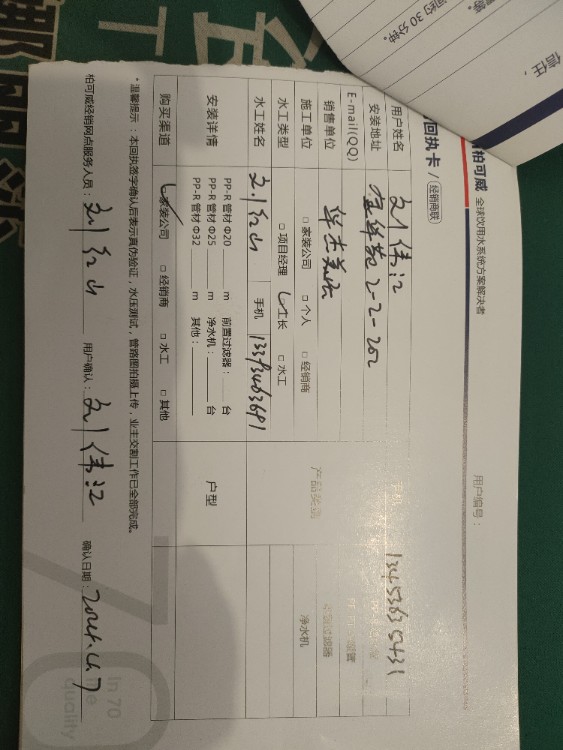 柏可威 全球饮用水系统方案解决者
回执卡 / 经销商联
用户编号：
用户姓名 刘伟江 13453635431
安装地址 金华苑2-2-202
E-mail(QQ)
销售单位 华杰美居
产品类别
净水机
施工单位 □ 家装公司 □ 个人 □ 经销商
水工类型 □ 项目经理 工长 □ 水工
水工姓名 刘红山 手机 13313463691
安装详情 PP-R 管材 Φ20 m 前置过滤器： 台 户型
PP-R 管材 Φ25 m 净水机： 台
PP-R 管材 Φ32 m 其他：
购买渠道 家装公司 □ 经销商 □ 水工 □ 其他
*温馨提示：本回执签字确认后表示真伪验证，水压测试，管路图拍摄上传，业主交割工作已全部完成。
柏可威经销网点服务人员：刘红山 用户确认：刘伟江 确认日期：2024.4.7
In 70
quality
约 30 分钟。
信任，